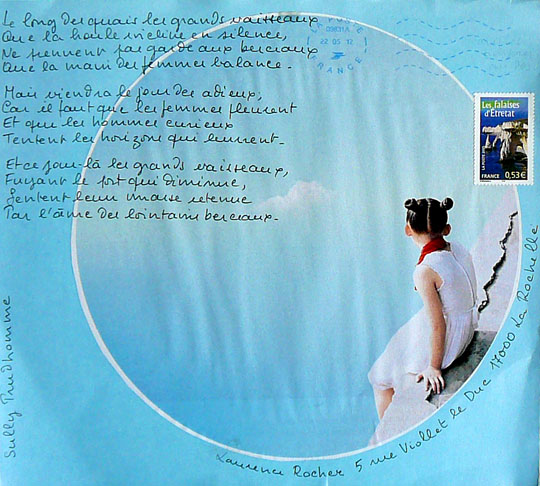 Le long des quais les grands vaisseaux,
Que la houle incline en silence,
Ne prennent pas garde aux berceaux
Que la main des femmes balance.
Mais viendra le jour des adieux,
Car il faut que les femmes pleurent
Et que les hommes curieux
Tentent les horizons qui leurrent.
Et ce jour-là les grands vaisseaux,
Fuyant le port qui diminue,
Sentent leur masse retenue
Par l'âme des lointains berceaux.
Sully Prudhomme
Laurence Rocher 5 rue Viollet le Duc 17000 La Rochelle
LA POSTE
22 05 12
FRANCE
Les falaises
d'Étretat
LA POSTE
FRANCE 0,53€